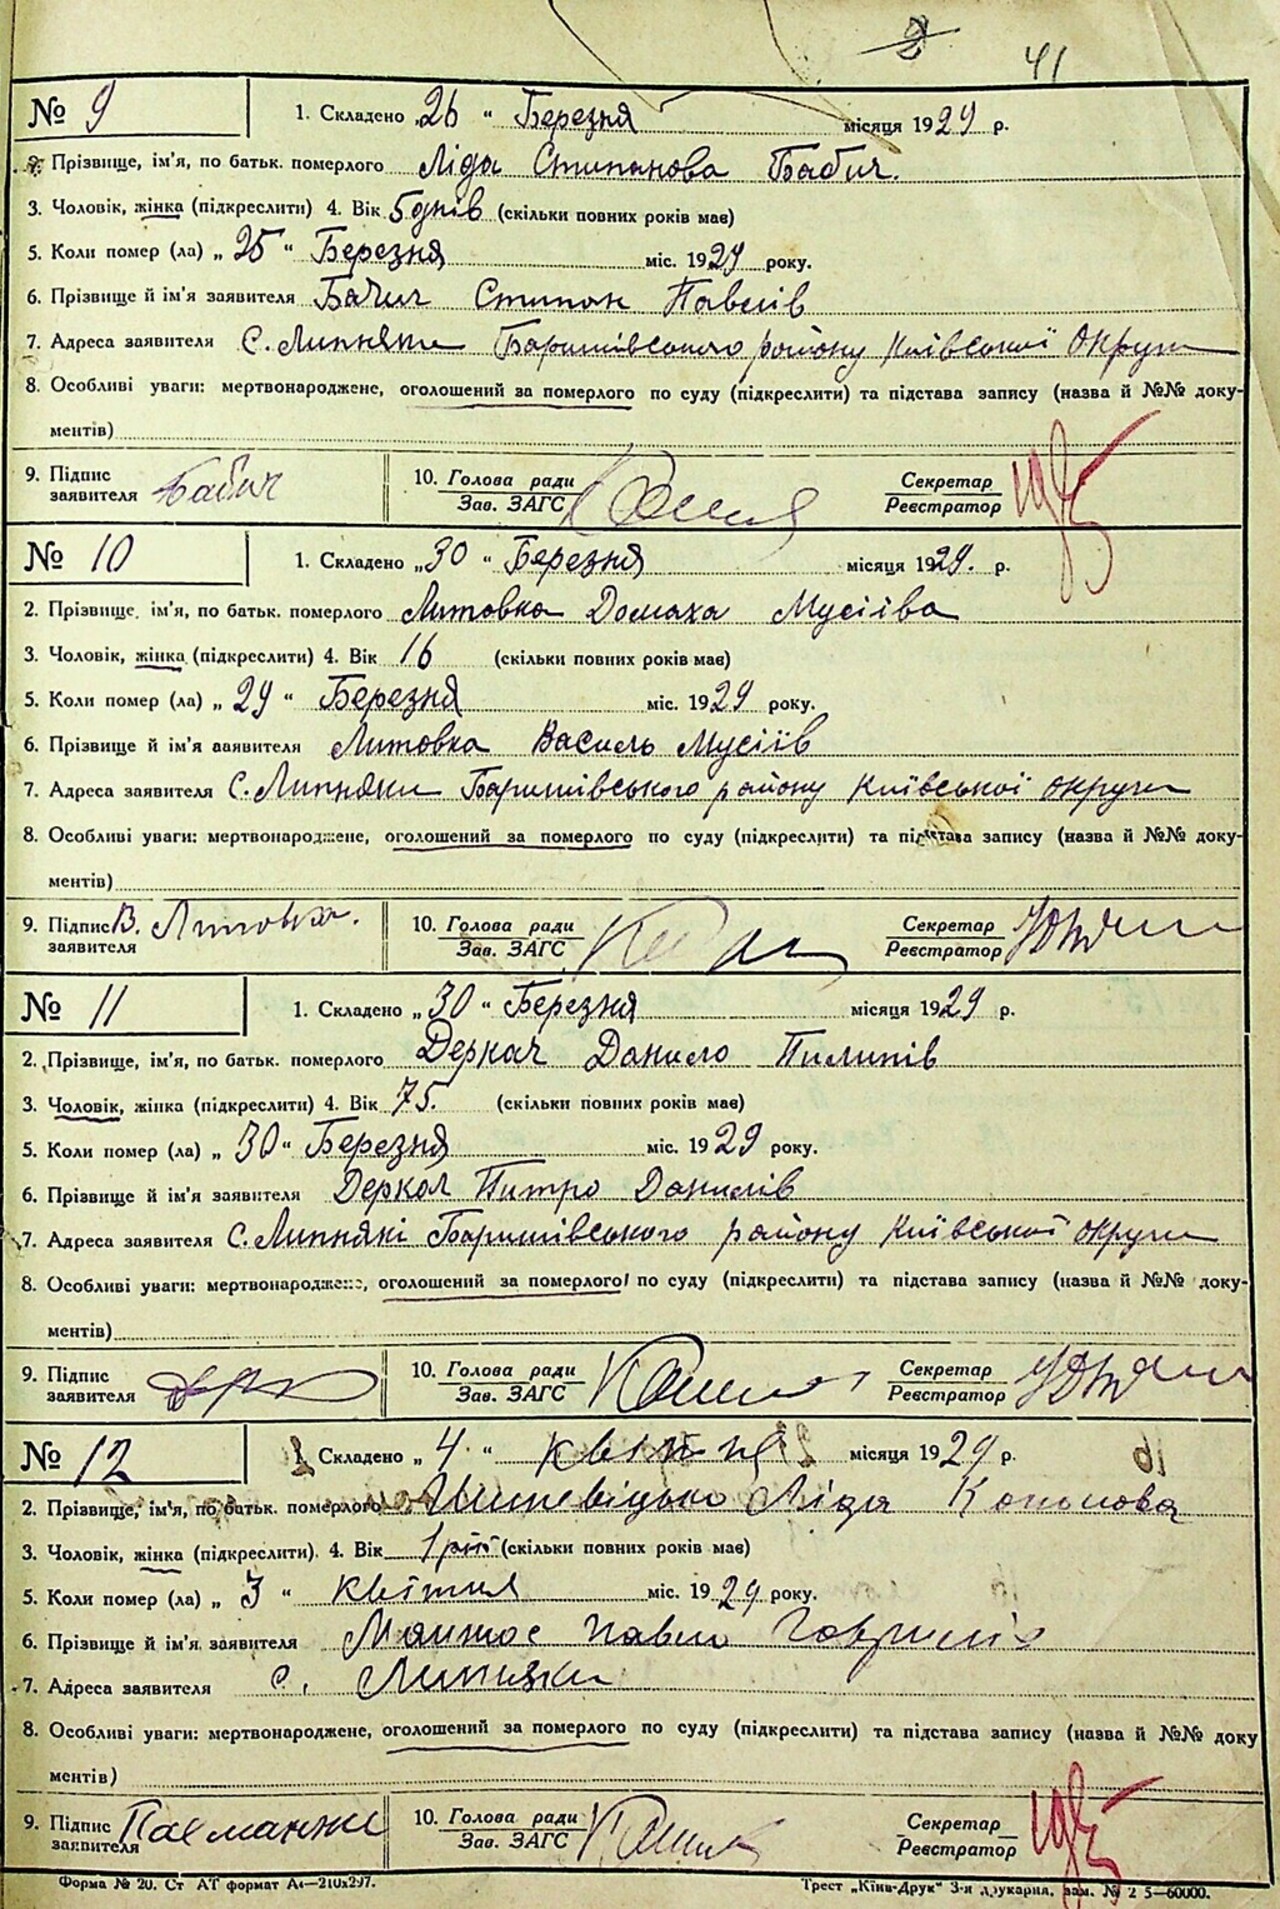 2 41
№ 9 1. Складено „26 “ Березня місяця 1929 р.
2. Прізвище, ім'я, по батьк. померлого Ліда Стипанова Бабич.
3. Чоловік, жінка (підкреслити) 4. Вік 5 днів (скільки повних років має)
5. Коли помер (ла) „ 25 “ Березня міс. 1929 року.
6. Прізвище й ім'я заявителя Бабич Стипан Павлів
7. Адреса заявителя С. Липняки Баришівського району Київської Округи
8. Особливі уваги: мертвонароджене, оголошений за померлого по суду (підкреслити) та підстава запису (назва й №№ доку-
ментів)
9. Підпис заявителя Бабич 10. Голова ради Зав. ЗАГС Секретар Реєстратор
№ 10 1. Складено „30 “ Березня місяця 1929. р.
2. Прізвище, ім'я, по батьк. померлого Литовка Домаха Мусіїва
3. Чоловік, жінка (підкреслити) 4. Вік 16 (скільки повних років має)
5. Коли помер (ла) „ 29 “ Березня міс. 1929 року.
6. Прізвище й ім'я заявителя Литовка Василь Мусіїв
7. Адреса заявителя С. Липняки Баришівського району Київської округи
8. Особливі уваги: мертвонароджене, оголошений за померлого по суду (підкреслити) та підстава запису (назва й №№ доку-
ментів)
9. Підпис заявителя В. Литовка. 10. Голова ради Зав. ЗАГС Секретар Реєстратор
№ 11 1. Складено „ 30 “ Березня місяця 1929 р.
2. Прізвище, ім'я, по батьк. померлого Деркач Данило Пилипів
3. Чоловік, жінка (підкреслити) 4. Вік 75. (скільки повних років має)
5. Коли помер (ла) „ 30 “ Березня міс. 1929 року.
6. Прізвище й ім'я заявителя Деркач Питро Данилів
7. Адреса заявителя С. Липнякі Баришівського району Київської округи
8. Особливі уваги: мертвонароджене, оголошений за померлого по суду (підкреслити) та підстава запису (назва й №№ доку-
ментів)
9. Підпис заявителя 10. Голова ради Зав. ЗАГС Секретар Реєстратор
№ 12 1. Складено „ 4 “ квітня місяця 1929 р.
2. Прізвище, ім'я, по батьк. померлого Ліда Кононова
3. Чоловік, жінка (підкреслити). 4. Вік 1 рік (скільки повних років має)
5. Коли помер (ла) „ 3 “ квітня міс. 1929 року.
6. Прізвище й ім'я заявителя Павло
7. Адреса заявителя с. Липняки
8. Особливі уваги: мертвонароджене, оголошений за померлого по суду (підкреслити) та підстава запису (назва й №№ доку
ментів)
9. Підпис заявителя 10. Голова ради Зав. ЗАГС Секретар Реєстратор
Форма № 20. Ст АТ формат А4—210х297. Трест „Київ-Друк“ 3-я друкарня, зам. № 2 5—60000.